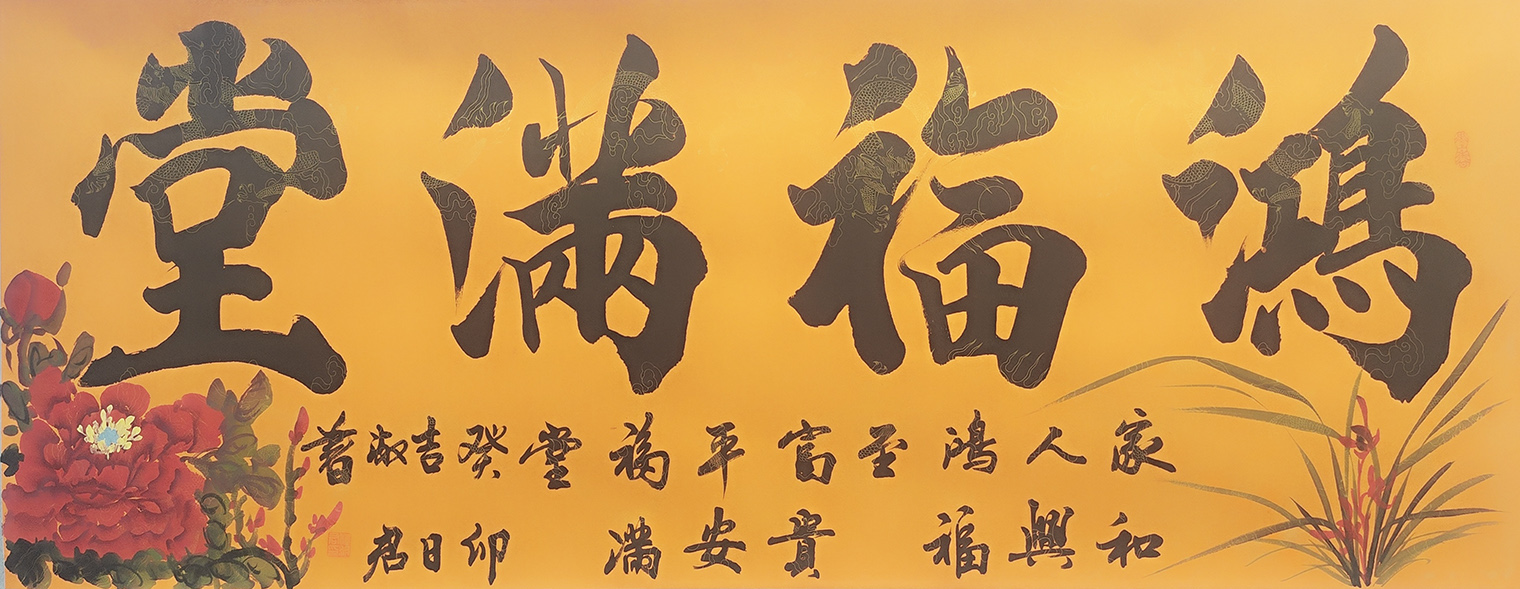 鴻福滿堂
家和
人興
鴻福
至
富貴
平安
福滿
堂
癸卯
吉日
淑君
書